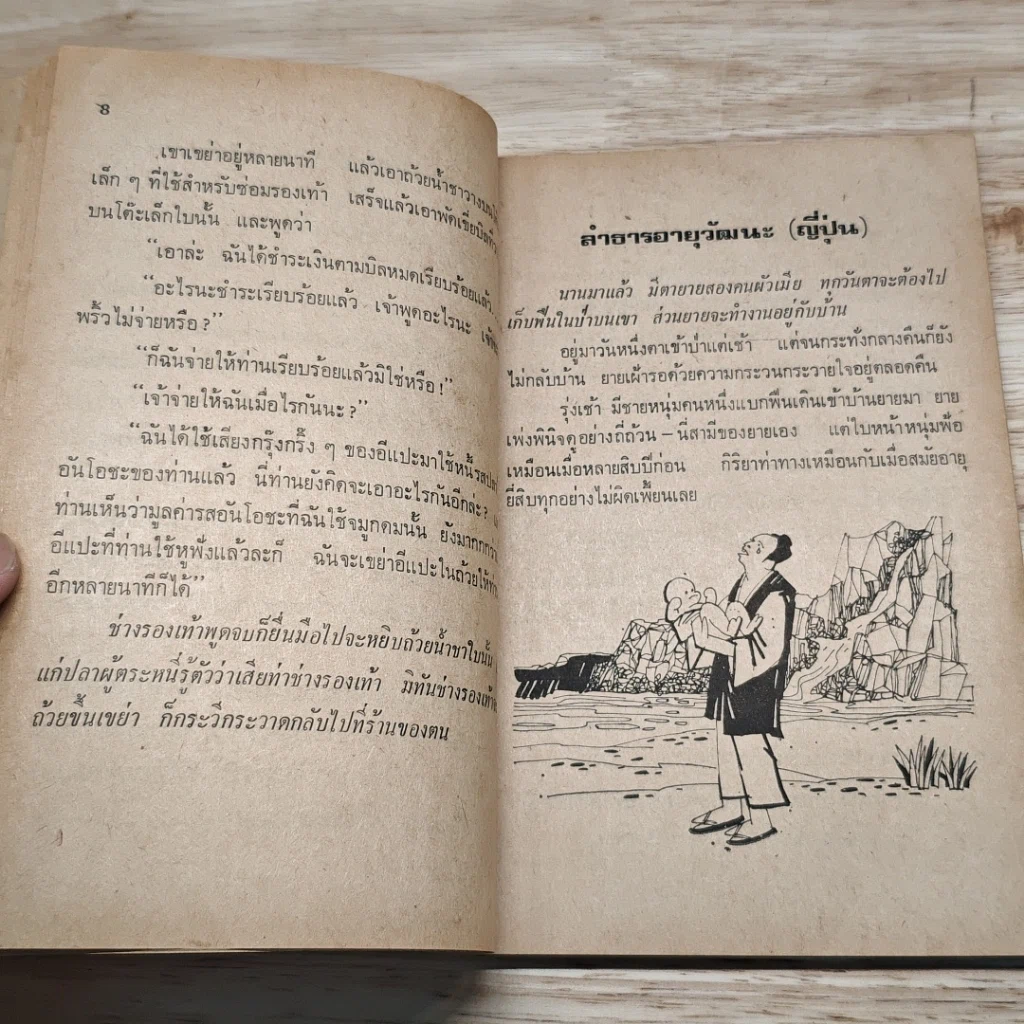 8
เขาเขย่าอยู่หลายนาที แล้วเอาถ้วยน้ำชาวางบน
เล็ก ๆ ที่ใช้สำหรับซ่อมรองเท้า เสร็จแล้วเอาพัดเขี่ยบิลที่
บนโต๊ะเล็กใบนั้น และพูดว่า
“เอาล่ะ ฉันได้ชำระเงินตามบิลหมดเรียบร้อยแล้ว
“อะไรนะชำระเรียบร้อยแล้ว เจ้าพูดอะไรนะ
พรั้วไม่จ่ายหรือ ?”
“ก็ฉันจ่ายให้ท่านเรียบร้อยแล้วมิใช่หรือ !”
“เจ้าจ่ายให้ฉันเมื่อไรกันนะ ?”
“ฉันได้ใช้เสียงกรุ๊งกริ๊ง ๆ ของอีแปะมาใช้หนี้รสปลา
อันโอชะของท่านแล้ว นี่ท่านยังคิดจะเอาอะไรกันอีกล่ะ ?
ท่านเห็นว่ามูลค่ารสอันโอชะที่ฉันใช้จมูกดมนั้น ยังมากกว่า
อีแปะที่ท่านใช้หูฟังแล้วละก็ ฉันจะเขย่าอีแปะในถ้วยให้ท่าน
อีกหลายนาทีก็ได้”
ช่างรองเท้าพูดจบก็ยื่นมือไปจะหยิบถ้วยน้ำชาใบนั้น
แก่ปลาผู้ตระหนี่รู้ตัวว่าเสียท่าช่างรองเท้า มิทันช่างรองเท้า
ถ้วยขึ้นเขย่า ก็กระวีกระวาดกลับไปที่ร้านของตน
ลำธารอายุวัฒนะ (ญี่ปุ่น)
นานมาแล้ว มีตายายสองคนผัวเมีย ทุกวันตาจะต้องไป
เก็บฟืนในป่าบนเขา ส่วนยายจะทำงานอยู่กับบ้าน
อยู่มาวันหนึ่งตาเข้าป่าแต่เช้า แต่จนกระทั่งกลางคืนก็ยัง
ไม่กลับบ้าน ยายเฝ้ารอด้วยความกระวนกระวายใจอยู่ตลอดคืน
รุ่งเช้า มีชายหนุ่มคนหนึ่งแบกฟืนเดินเข้าบ้านยายมา ยาย
เพ่งพินิจดูอย่างถี่ถ้วน – นี่สามีของยายเอง แต่ใบหน้าหนุ่มฟ้อ
เหมือนเมื่อหลายสิบปีก่อน กิริยาท่าทางเหมือนกับเมื่อสมัยอายุ
ยี่สิบทุกอย่างไม่ผิดเพี้ยนเลย